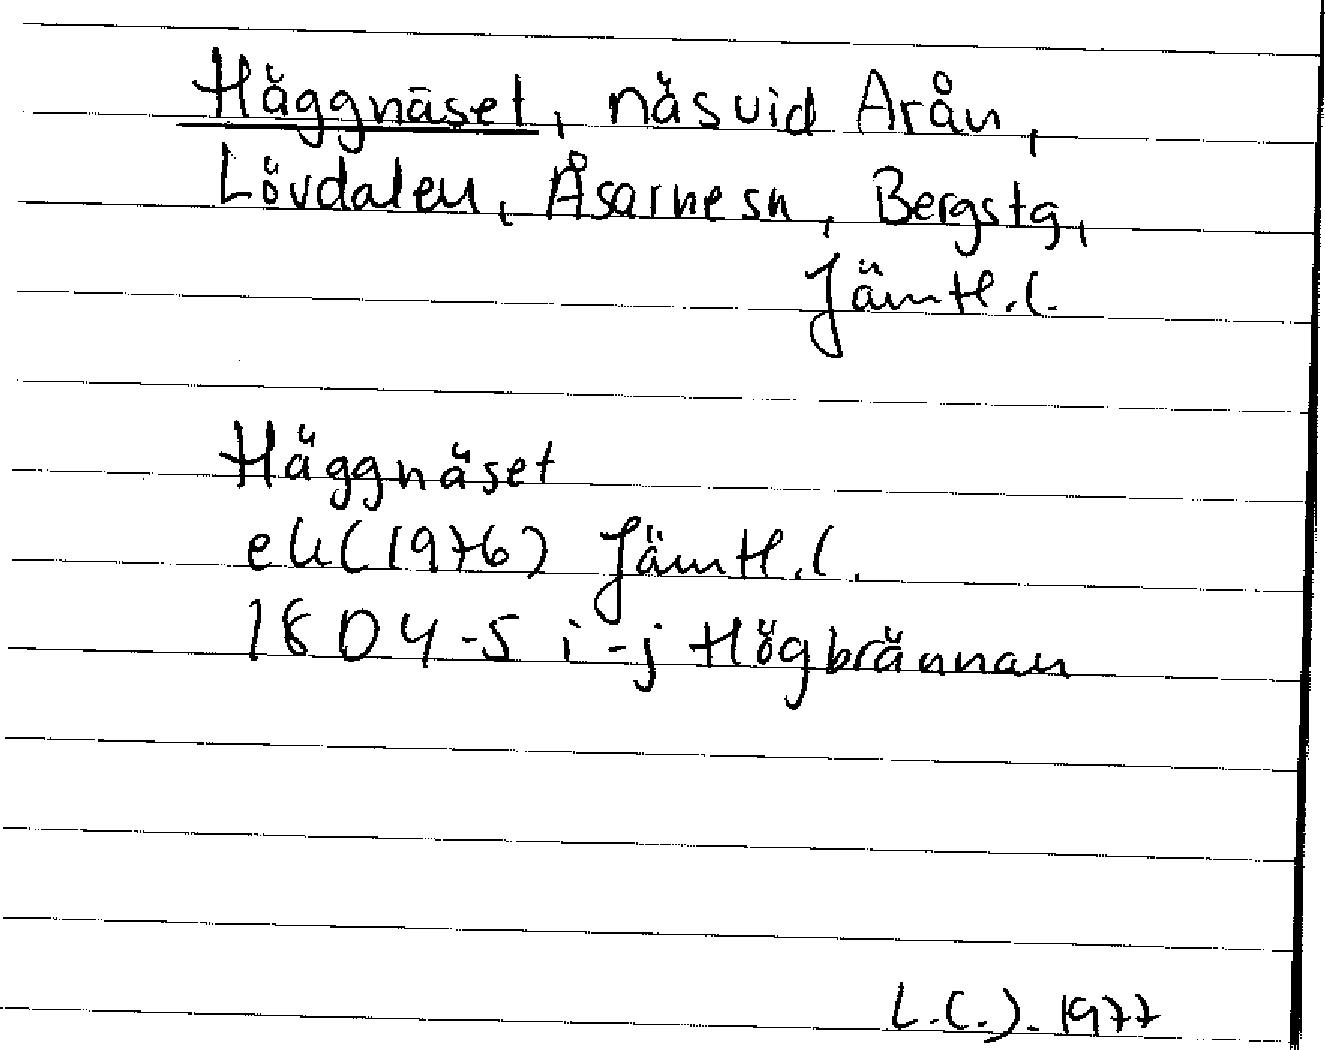 Häggnäset, näs vid Arån,
Lövdalen, Åsarne sn, Bergs tg,
Jämtl. l.
Häggnäset
ek (1976) Jämtl. l.
18D 4-5 i-j Högbrännan
L.(.). 1977